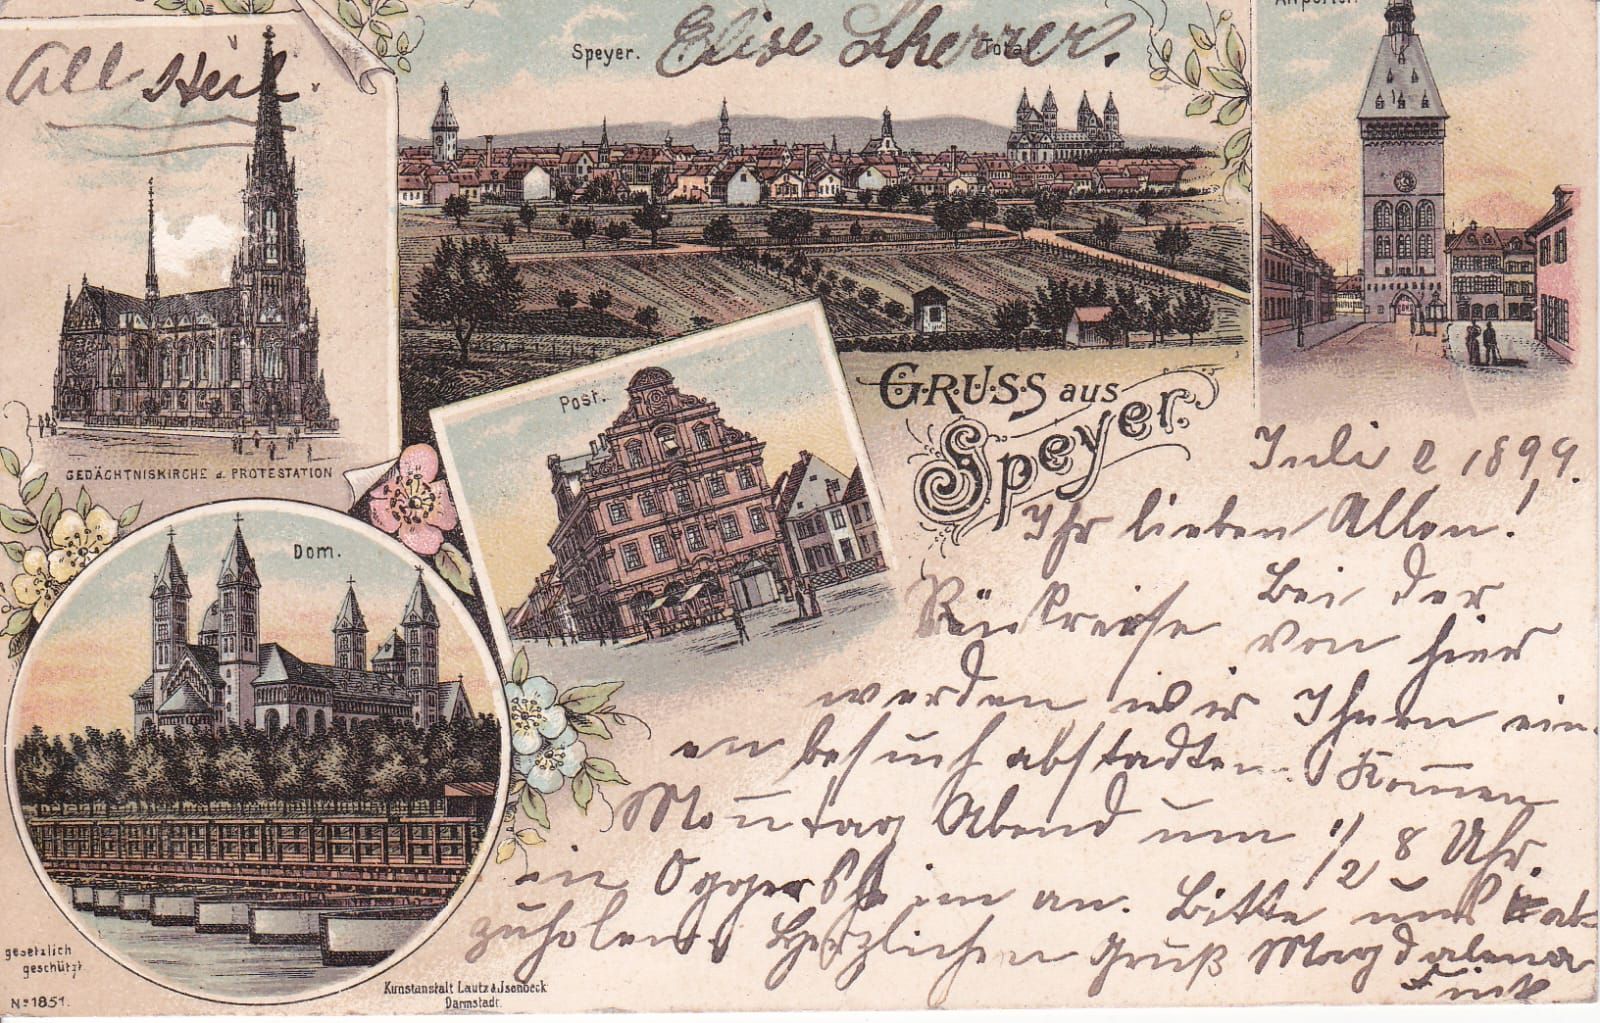 All Heil.
Elise Scherrer.
Speyer. Total.
Altpörtel.
GEDÄCHTNISKIRCHE d. PROTESTATION
Post.
GRUSS aus
Speyer.
Dom.
Juli 2, 1899.
Ihr lieben Allen!
Bei der
Rückreise von hier
werden wir Ihnen ein-
en besuch abstadten. Kom̅en
Mon̅tag Abend um 1/2 8 Uhr.
in Oggersheim an. Bitte uns ab-
zuholen. Herzlichen Gruß Magdalena
Fink
gesetzlich
geschützt.
No 1851.
Kunstanstalt Lautz & Jsenbeck
Darmstadt.